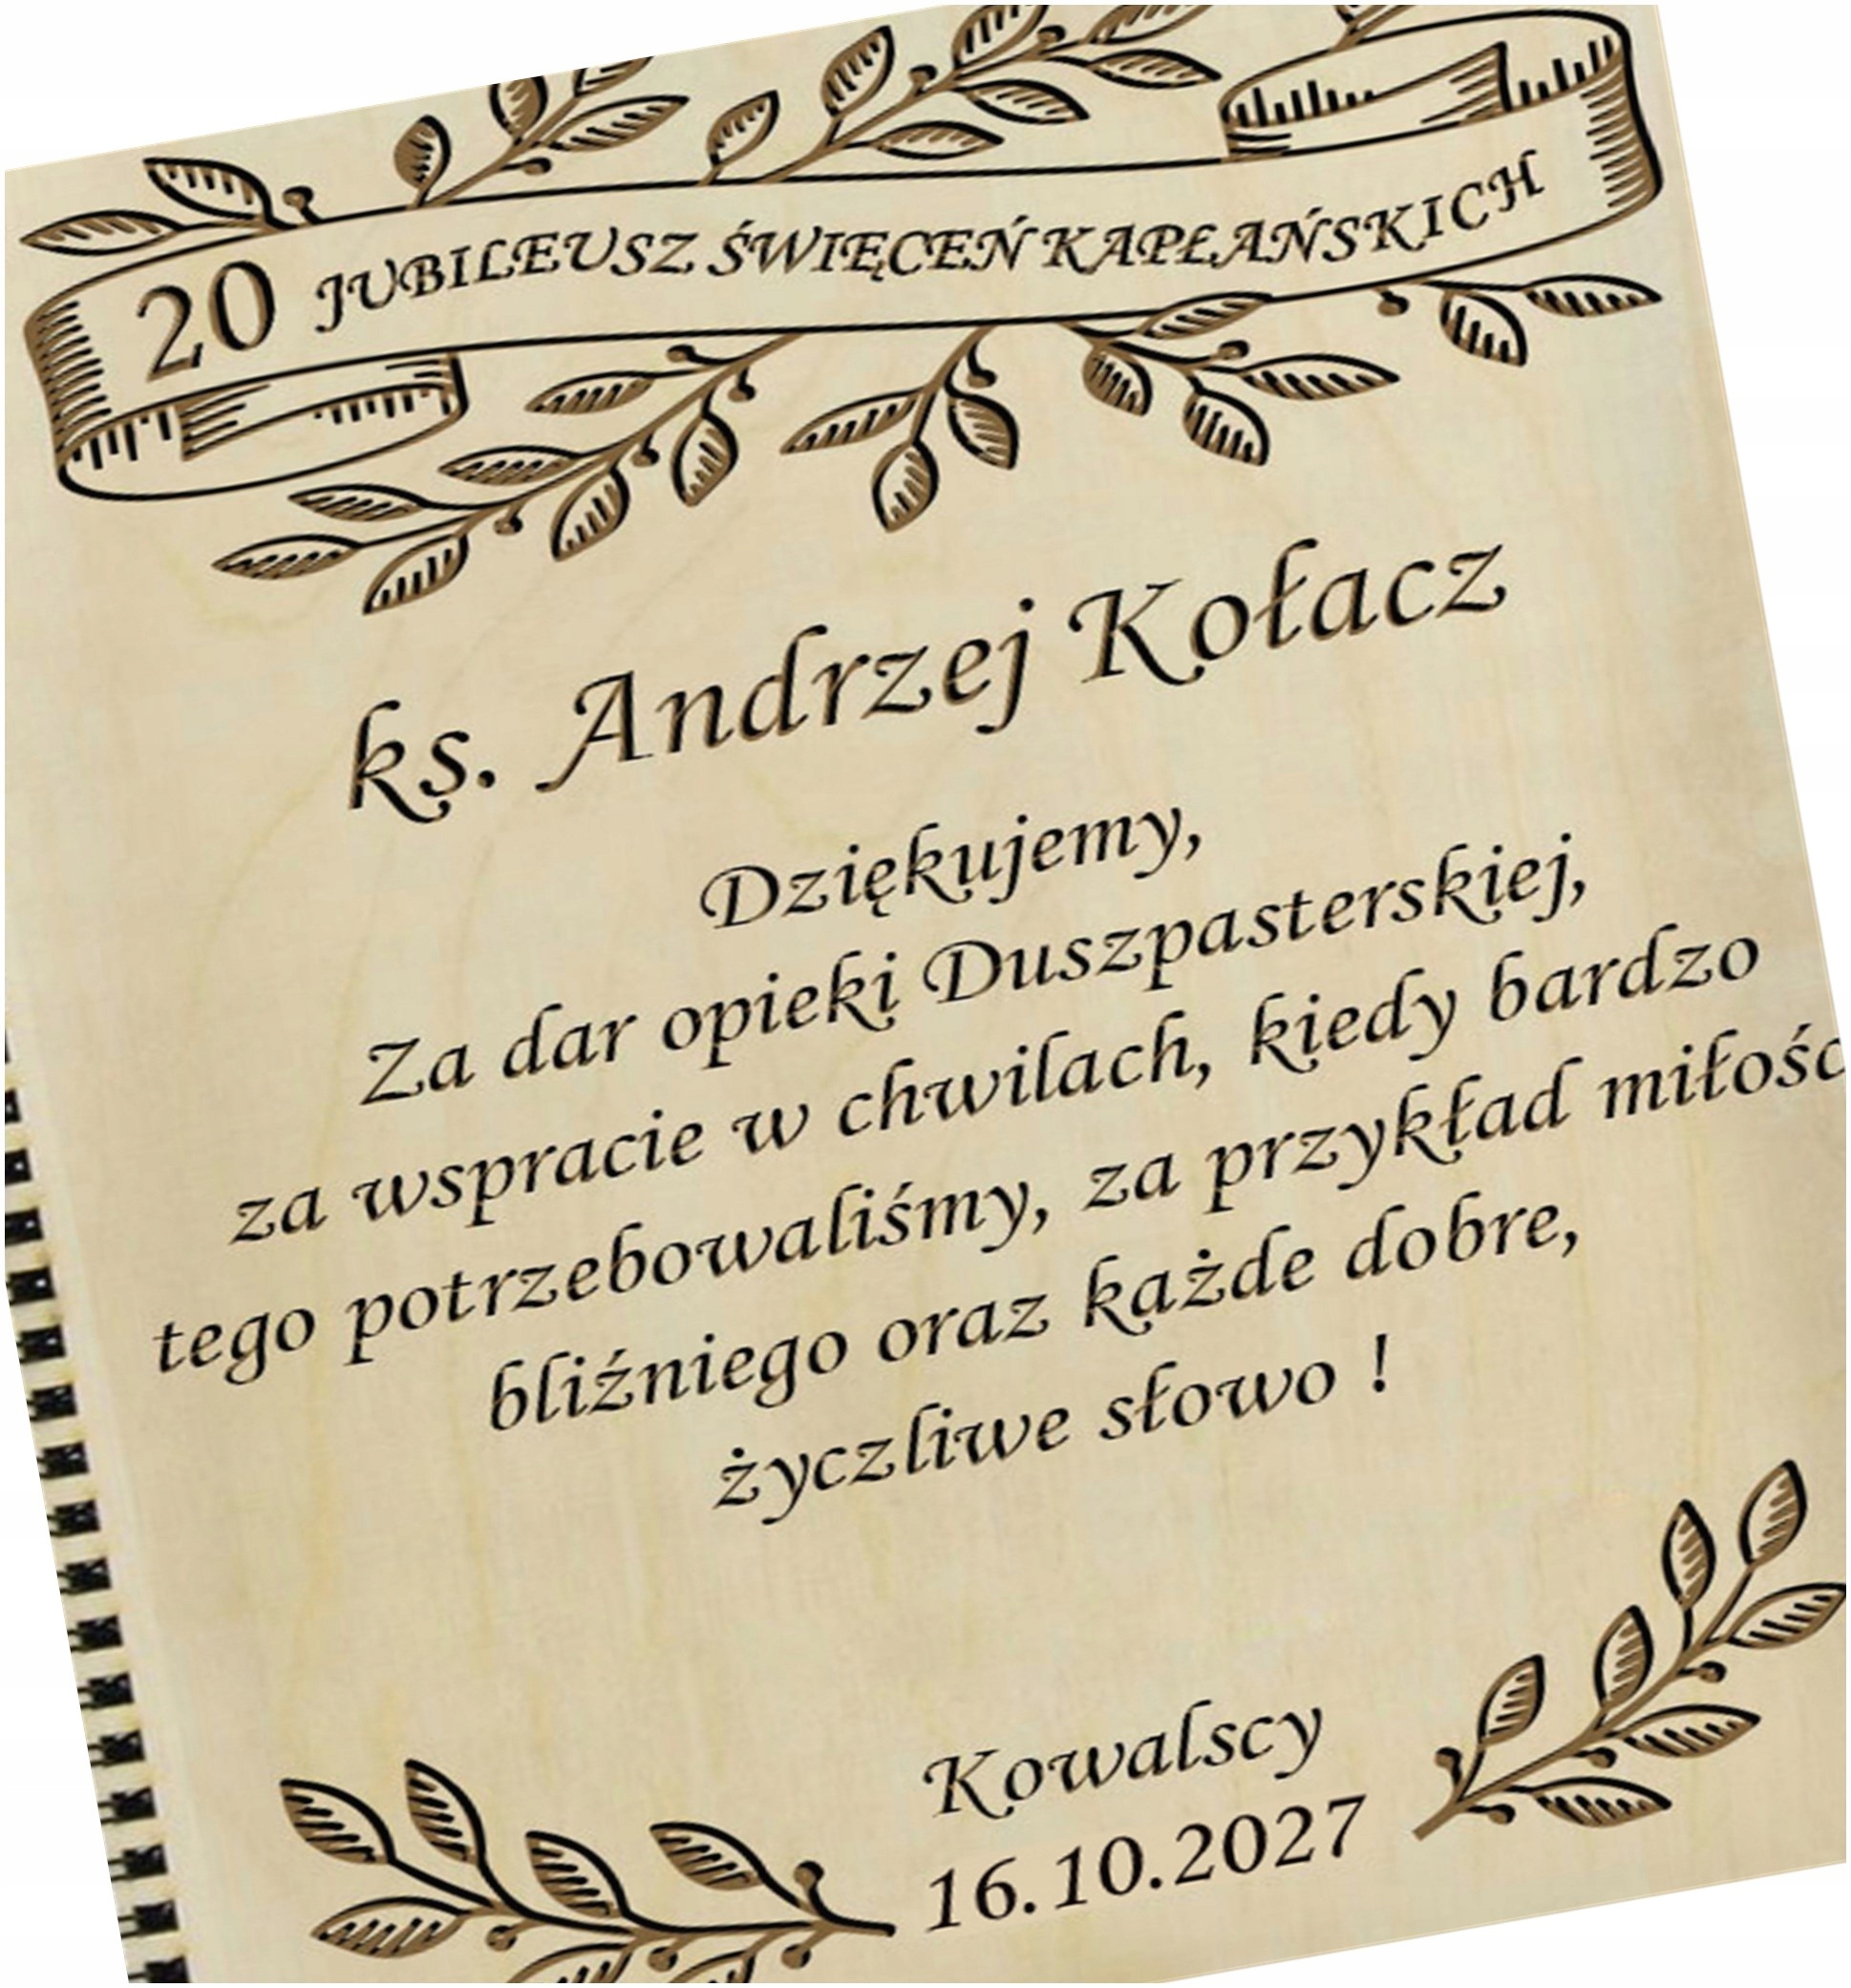 20 JUBILEUSZ ŚWIĘCEŃ KAPŁAŃSKICH
ks. Andrzej Kołacz
Dziękujemy,
Za dar opieki Duszpasterskiej,
za wspracie w chwilach, kiedy bardzo
tego potrzebowaliśmy, za przykład miłośc
bliźniego oraz każde dobre,
życzliwe słowo !
Kowalscy
16.10.2027